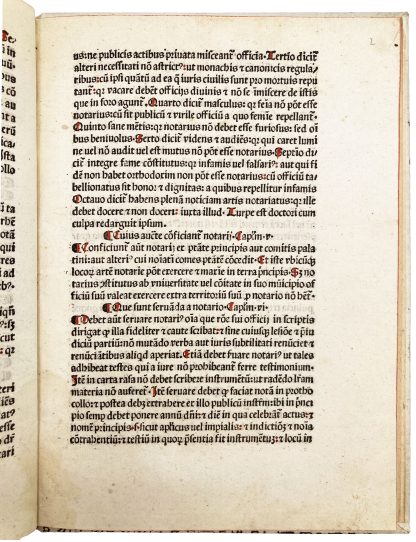 us: ne publicis actibus priuata misceant̄ officia. Tertio dicit̄
alteri necessitati nō astrict⁹: ut monachis ⁊ canonicis regula/
ribus: cū ipsi quātū ad ea q̄ iuris ciuilis sunt pro mortuis repu
tant̄: qr vacare debēt officijs diuinis ⁊ nō se īmiscere de istis
que in foro agunt̄. Quarto dicit̄ masculus: qr feīa nō pōt esse
notarius: cū sit publicū ⁊ virile officiū a quo femīe repellant̄.
Quinto sane mētis: qr notarius nō debet esse furiosus: sed oī
bus beniuolus. Sexto dicit̄ videns ⁊ audiēs: qr qui caret lumi
ne vel nō audit vel est mutus nō pōt esse notarius. Septīo di/
cit̄ integre fame cōstitutus: qr infamis vel falsari⁹: aut qui fi
dem non habet orthodorim non pōt esse notarius: cū officiū ta/
bellionatus sit honor ⁊ dignitas: a quibus repellitur infamis
Octauo dicit̄ habens plenā noticiam artis notariatus: qr ille
debet docere ⁊ non doceri: iuxta illud. Turpe est doctori cum
culpa redarguit ipsum.
¶ Cuius auct̄e cōficiant̄ notarij. Cap̄lm .v.
¶ Conficiunt̄ aūt notarij ex ptāte p̄ncipis aut comitis pala
tini: aut alteri⁹ cui noīatī comes ptātē cōcedit. Et iste vbicūqȝ
locoꝝ artē notarie pōt exercere ⁊ marie in terra p̄ncipis. Sȝ no
tarius ꝯstitutus ab vniuersitate vel cōitate in suo mūicipio of
ficiū suū valeat exercere extra territoriū suū ꝓ notario nō hēt̄.
¶ Que sunt seruāda a notario. Cap̄lm .vi.
¶ Debet aūt seruare notari⁹ oīa que rōe sui officij in scriptis
dirigat qꝫ illa fideliter ⁊ caute scribat: ⁊ sine cuiusqȝ lesiōe ⁊ p̄iu
diciū partiū: nō mutādo verba aut iuris subtilitati renūciet ⁊
renūciatībus aliqd aperiat. Etiā debet fuare notari⁹ ut tales
adhibeat testes qui a iure nō prohibeant̄ ferre testimonium.
Itē in carta rasa nō debet scribere instrumētū: ut radēdo lr̄am
materia nō auferet̄. Itē seruare debet qꝫ faciat notā in protho
collo: ⁊ postea debȝ extrahere et illo publicū instrm̄: ibi in p̄nci
pio semp debet ponere annū dn̄i: ⁊ diē in qua celebrat̄ actus: ⁊
nomē p̄ncipis: s. sicut ap̄licus vel imp̄ialis: ⁊ indictiōȝ ⁊ noīa
cōtrahentiū: ⁊ testiū in quoꝝ p̄sentia fit instrumētuȝ: ⁊ locū in